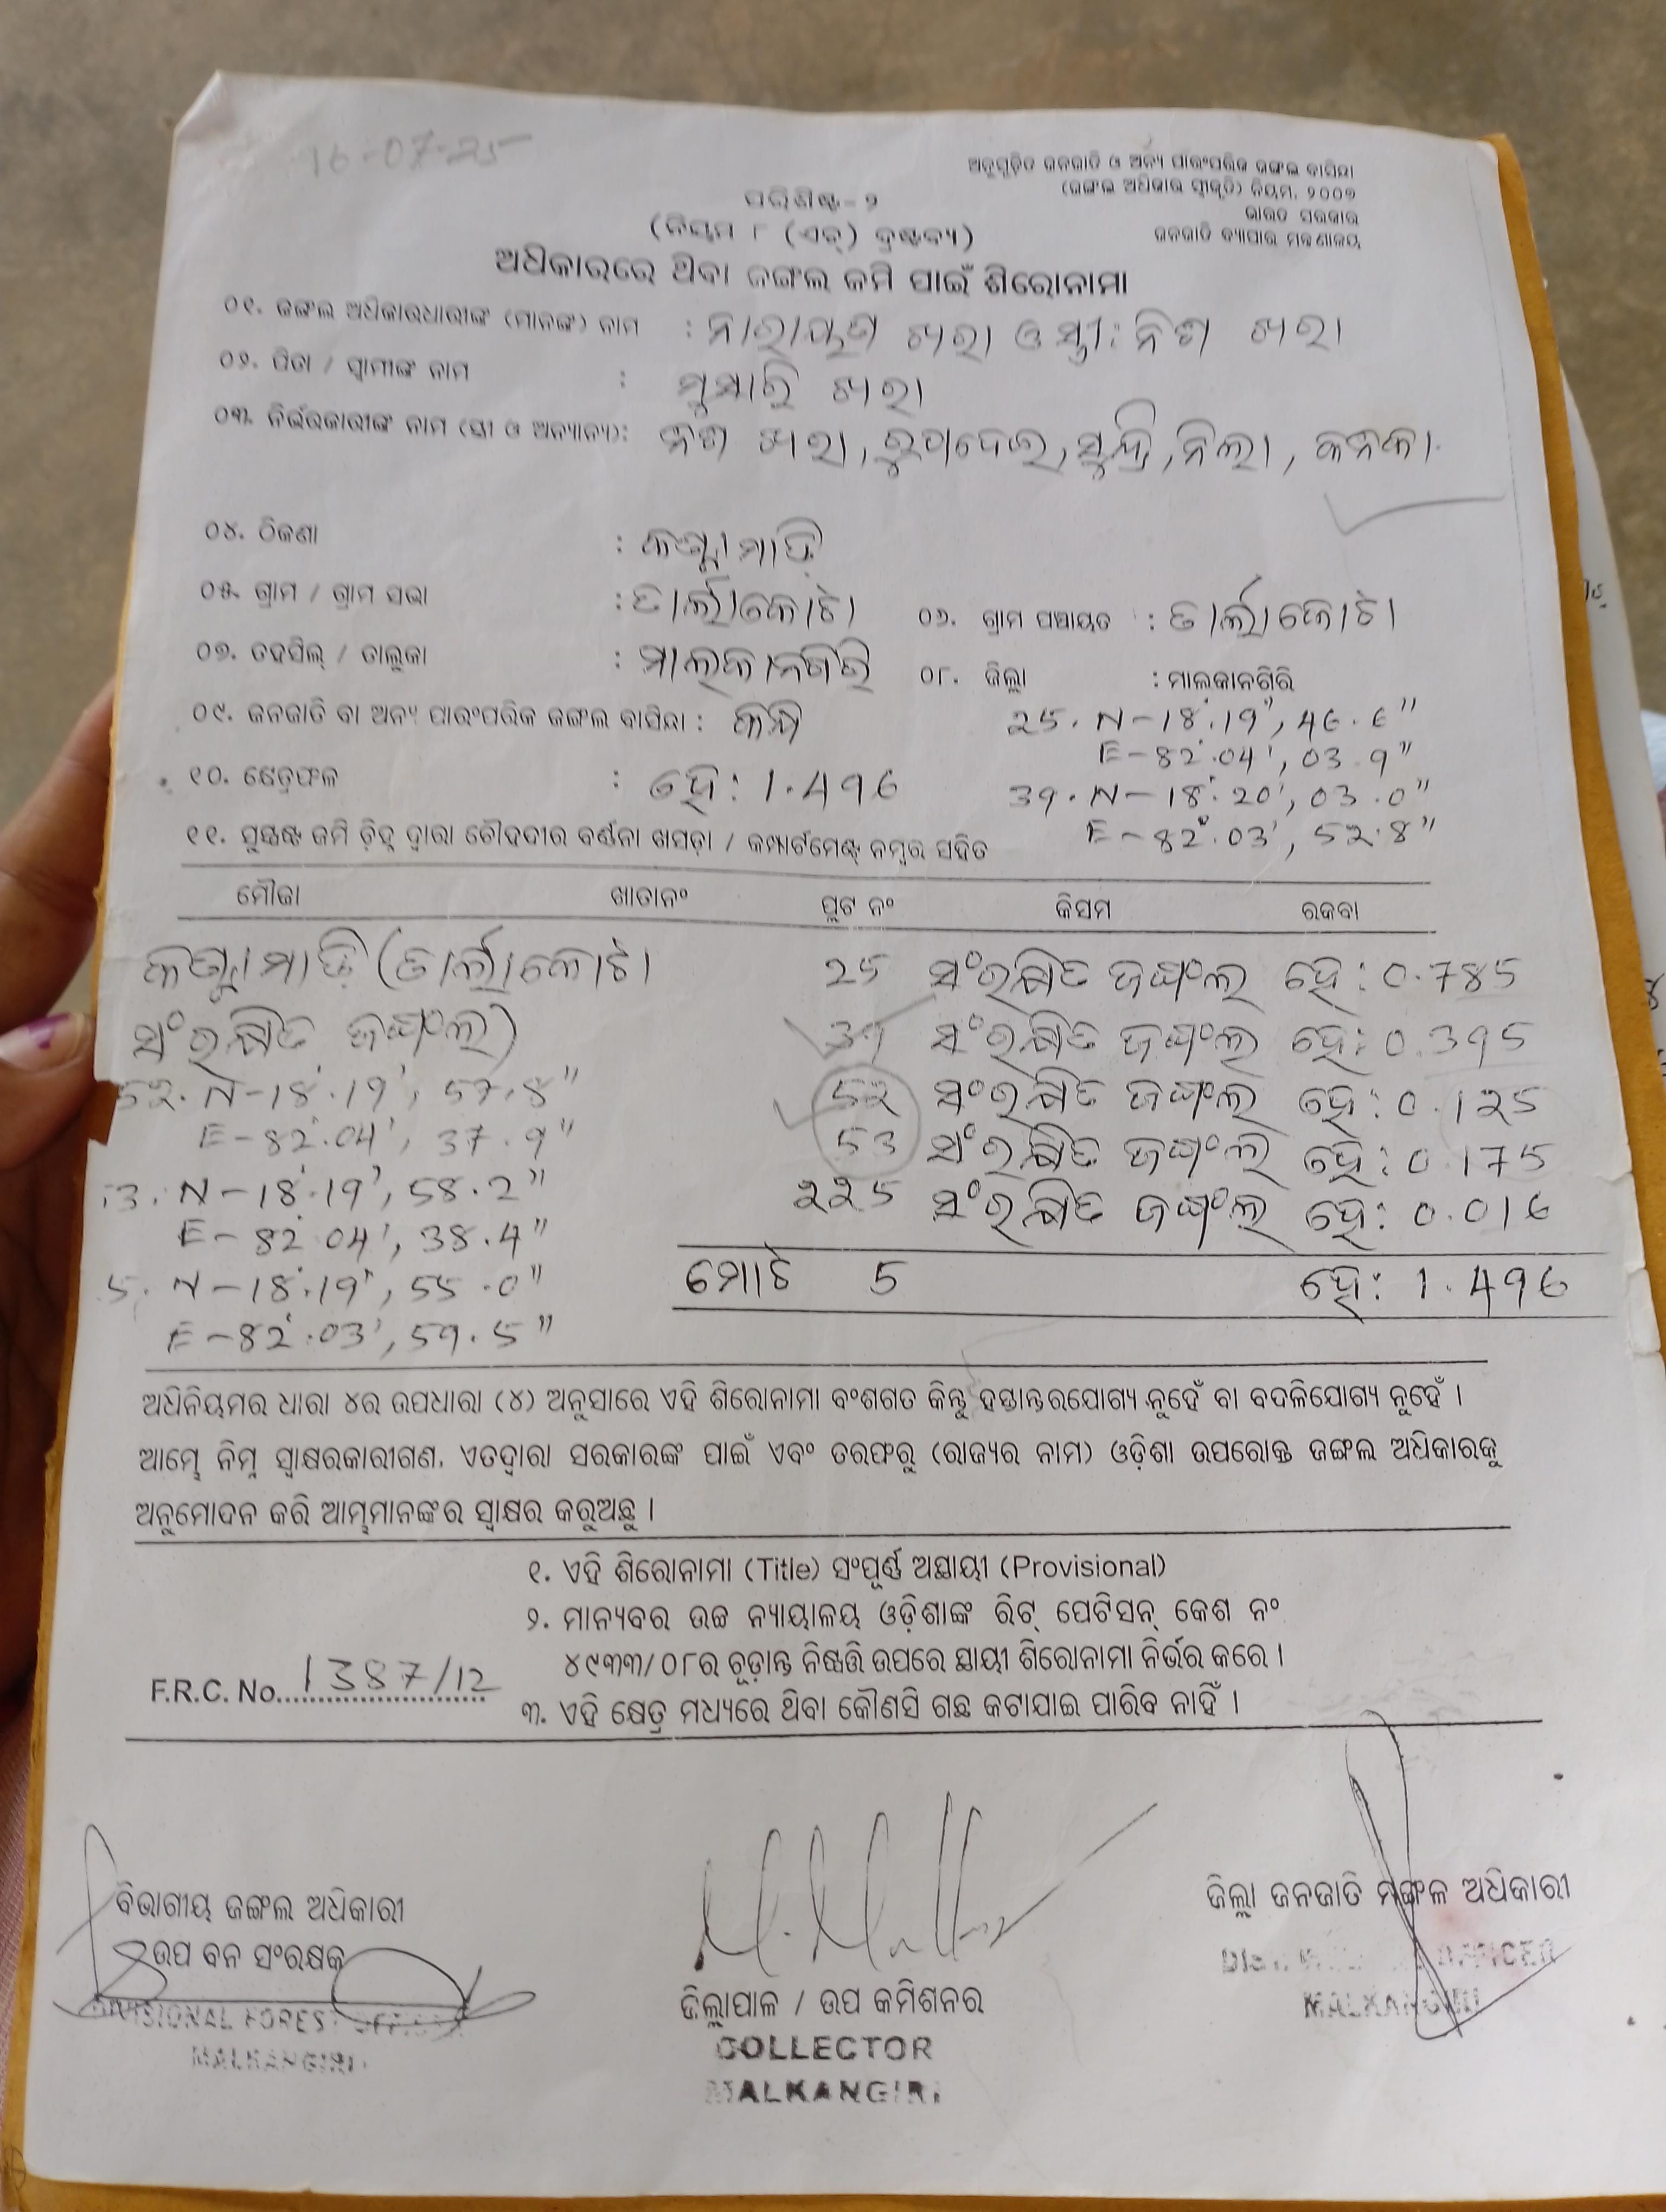 16-07-25
ଅନୁସୂଚିତ ଜନଜାତି ଓ ଅନ୍ୟ ପାରଂପରିକ ଜଙ୍ଗଲ ବାସିନ୍ଦା
(ଜଙ୍ଗଲ ଅଧିକାର ସ୍ୱୀକୃତି) ନିୟମ, ୨୦୦୭
ଭାରତ ସରକାର
ଜନଜାତି ବ୍ୟାପାର ମନ୍ତ୍ରଣାଳୟ
ପରିଶିଷ୍ଟ- ୨
(ନିୟମ ୮ (ଏଚ୍) ଦ୍ରଷ୍ଟବ୍ୟ)
ଅଧିକାରରେ ଥିବା ଜଙ୍ଗଲ ଜମି ପାଇଁ ଶିରୋନାମା
୦୧. ଜଙ୍ଗଲ ଅଧିକାରଧାରୀଙ୍କ (ମାନଙ୍କ) ନାମ : ନାରାୟଣ ଖରା ଓ ସ୍ତ୍ରୀ: ନିଶ ଖରା
୦୨. ପିତା / ସ୍ୱାମୀଙ୍କ ନାମ : ମୁସାରି ଖରା
୦୩. ନିର୍ଭରକାରୀଙ୍କ ନାମ (ସ୍ତ୍ରୀ ଓ ଅନ୍ୟାନ୍ୟ): ଖରା, ନିଲା, କନକା
୦୪. ଠିକଣା :
୦୫. ଗ୍ରାମ / ଗ୍ରାମ ସଭା : ତାର୍ଲାକୋଟା ୦୬. ଗ୍ରାମ ପଞ୍ଚାୟତ : ତାର୍ଲାକୋଟା
୦୭. ତହସିଲ୍ / ତାଲୁକା : ମାଲକାନଗିରି ୦୮. ଜିଲ୍ଲା : ମାଲକାନଗିରି
୦୯. ଜନଜାତି ବା ଅନ୍ୟ ପାରଂପରିକ ଜଙ୍ଗଲ ବାସିନ୍ଦା : କନ୍ଧ
25. N-18°.19', 46.6"
E-82°.04', 03.9"
୧୦. କ୍ଷେତ୍ରଫଳ : ହେ: 1.496
39. N-18°.20', 03.0"
E-82°.03', 52.8"
୧୧. ସୁସ୍ପଷ୍ଟ ଜମି ଚିହ୍ନ ଦ୍ୱାରା ଚୌହଦୀର ବର୍ଣ୍ଣନା ଖସଡ଼ା / କମ୍ପାର୍ଟମେଣ୍ଟ ନମ୍ବର ସହିତ
ମୌଜା ଖାତାନଂ ପ୍ଲଟ ନଂ କିସମ ରକବା
(ତାର୍ଲାକୋଟା 25 ସଂରକ୍ଷିତ ଜଙ୍ଗଲ ହେ: 0.785
ସଂରକ୍ଷିତ ଜଙ୍ଗଲ) 39 ସଂରକ୍ଷିତ ଜଙ୍ଗଲ ହେ: 0.395
52. N-18°.19', 57.8" 52 ସଂରକ୍ଷିତ ଜଙ୍ଗଲ ହେ: 0.125
E-82°.04', 37.9" 53 ସଂରକ୍ଷିତ ଜଙ୍ଗଲ ହେ: 0.175
3. N-18°.19', 58.2" 225 ସଂରକ୍ଷିତ ଜଙ୍ଗଲ ହେ: 0.016
E-82°04', 38.4"
5. N-18°.19', 55.0" ମୋଟ 5 ହେ: 1.496
E-82°.03', 59.5"
ଅଧିନିୟମର ଧାରା ୪ର ଉପଧାରା (୪) ଅନୁସାରେ ଏହି ଶିରୋନାମା ବଂଶଗତ କିନ୍ତୁ ହସ୍ତାନ୍ତରଯୋଗ୍ୟ ନୁହେଁ ବା ବଦଳିଯୋଗ୍ୟ ନୁହେଁ ।
ଆମ୍ଭେ ନିମ୍ନ ସ୍ୱାକ୍ଷରକାରୀଗଣ, ଏତଦ୍ୱାରା ସରକାରଙ୍କ ପାଇଁ ଏବଂ ତରଫରୁ (ରାଜ୍ୟର ନାମ) ଓଡ଼ିଶା ଉପରୋକ୍ତ ଜଙ୍ଗଲ ଅଧିକାରକୁ
ଅନୁମୋଦନ କରି ଆମ୍ଭମାନଙ୍କର ସ୍ୱାକ୍ଷର କରୁଅଛୁ ।
୧. ଏହି ଶିରୋନାମା (Title) ସଂପୂର୍ଣ୍ଣ ଅସ୍ଥାୟୀ (Provisional)
୨. ମାନ୍ୟବର ଉଚ୍ଚ ନ୍ୟାୟାଳୟ ଓଡ଼ିଶାଙ୍କ ରିଟ୍ ପେଟିସନ୍ କେଶ ନଂ
୪୯୩୩/୦୮ର ଚୂଡ଼ାନ୍ତ ନିଷ୍ପତ୍ତି ଉପରେ ସ୍ଥାୟୀ ଶିରୋନାମା ନିର୍ଭର କରେ ।
F.R.C. No. 1387/12
୩. ଏହି କ୍ଷେତ୍ର ମଧ୍ୟରେ ଥିବା କୌଣସି ଗଛ କଟାଯାଇ ପାରିବ ନାହିଁ ।
ବିଭାଗୀୟ ଜଙ୍ଗଲ ଅଧିକାରୀ
ଉପ ବନ ସଂରକ୍ଷକ
DIVISIONAL FOREST OFFICER
MALKANGIRI
ଜିଲ୍ଲାପାଳ / ଉପ କମିଶନର
COLLECTOR
MALKANGIRI
ଜିଲ୍ଲା ଜନଜାତି ମଙ୍ଗଳ ଅଧିକାରୀ
OFFICER
MALKANGIRI